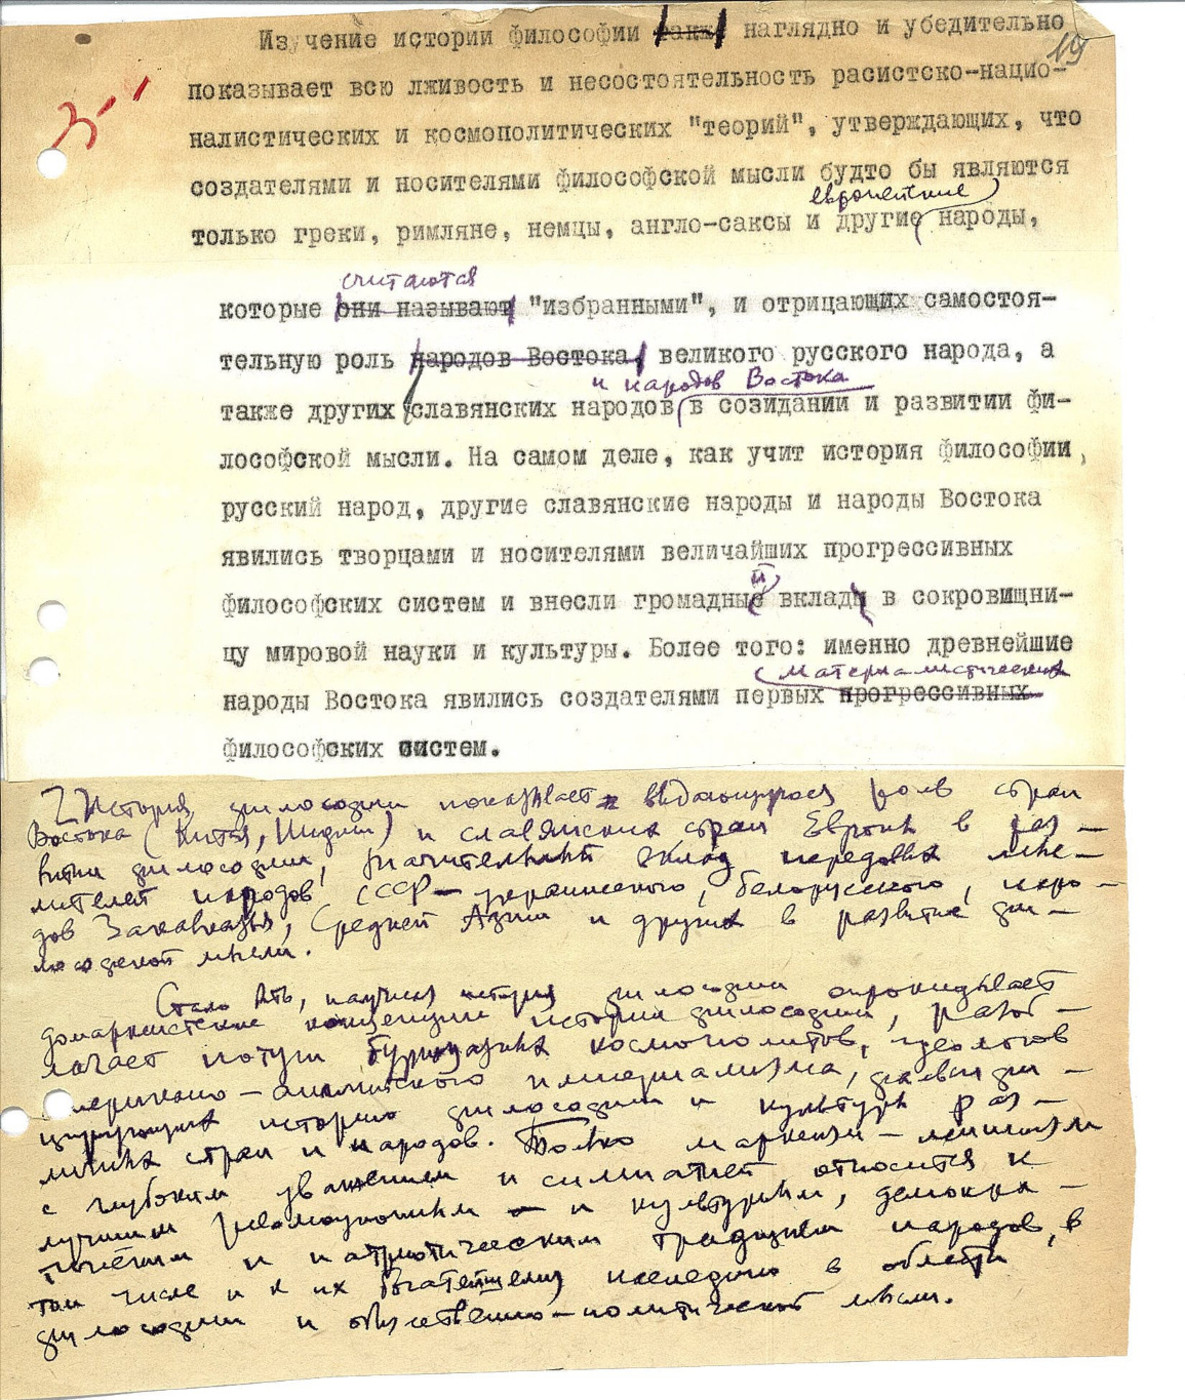 Изучение истории философии также наглядно и убедительно
19
показывает всю лживость и несостоятельность расистско-нацио-
3--
налистических и космополитических "теорий", утверждающих, что
создателями и носителями философской мысли будто бы являются
европейские
только греки, римляне, немцы, англо-саксы и другие народы,
считаются
которые они называют "избранными", и отрицающих самостоя-
тельную роль народов Востока, великого русского народа, а
и народов Востока
также других славянских народов в созидании и развитии фи-
лософской мысли. На самом деле, как учит история философии,
русский народ, другие славянские народы и народы Востока
явились творцами и носителями величайших прогрессивных
й
философских систем и внесли громадные вклады в сокровищни-
цу мировой науки и культуры. Более того: именно древнейшие
материалистических
народы Востока явились создателями первых прогрессивных
философских систем.
История философии показывает выдающуюся роль стран
Востока (Китая, Индии) и славянских стран Европы в раз-
витии философии, значительный вклад передовых мыс-
лителей народов СССР — украинского, белорусского, наро-
дов Закавказья, Средней Азии и других в развитие фи-
лософской мысли.
Стало быть, научная история философии опрокидывает
домарксистские концепции истории философии, разоб-
лачает потуги буржуазных космополитов, идеологов
американо-английского империализма, фальсифи-
цирующих историю философии и культуры раз-
личных стран и народов. Только марксизм-ленинизм
с глубоким уважением и симпатией относится к
лучшим революционным и культурным, демокра-
тическим и патриотическим традициям народов, в
том числе и к их богатейшему наследию в области
философии и общественно-политической мысли.